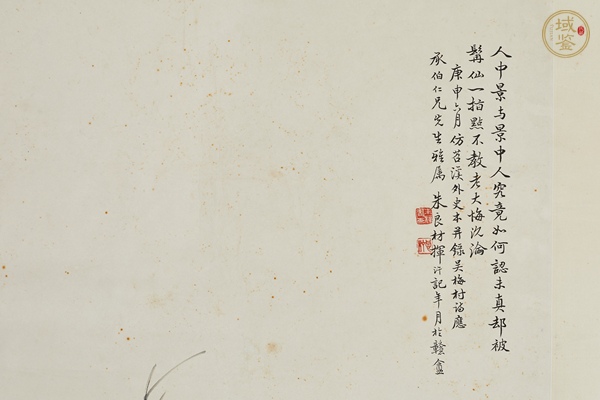 人中景与景中人究竟如何認未真却被
髯仙一指點不教老大悔沉淪
庚申六月仿苕溪外史本并錄吴梅村詩應
承伯仁兄先生雅屬 朱良材揮汗記年月於 盦
域鉴